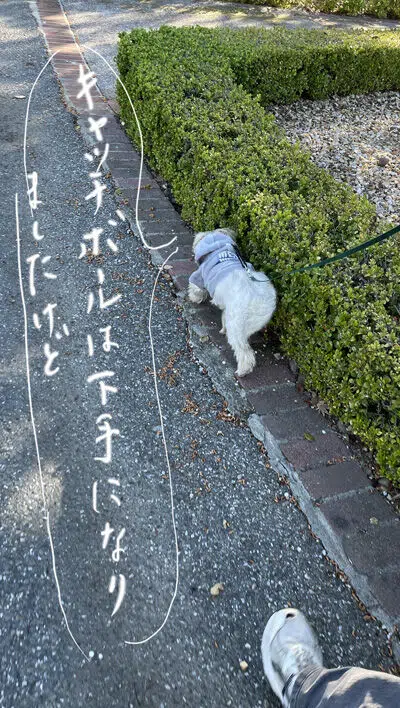 キャッチボールは下手になり
ましたけど